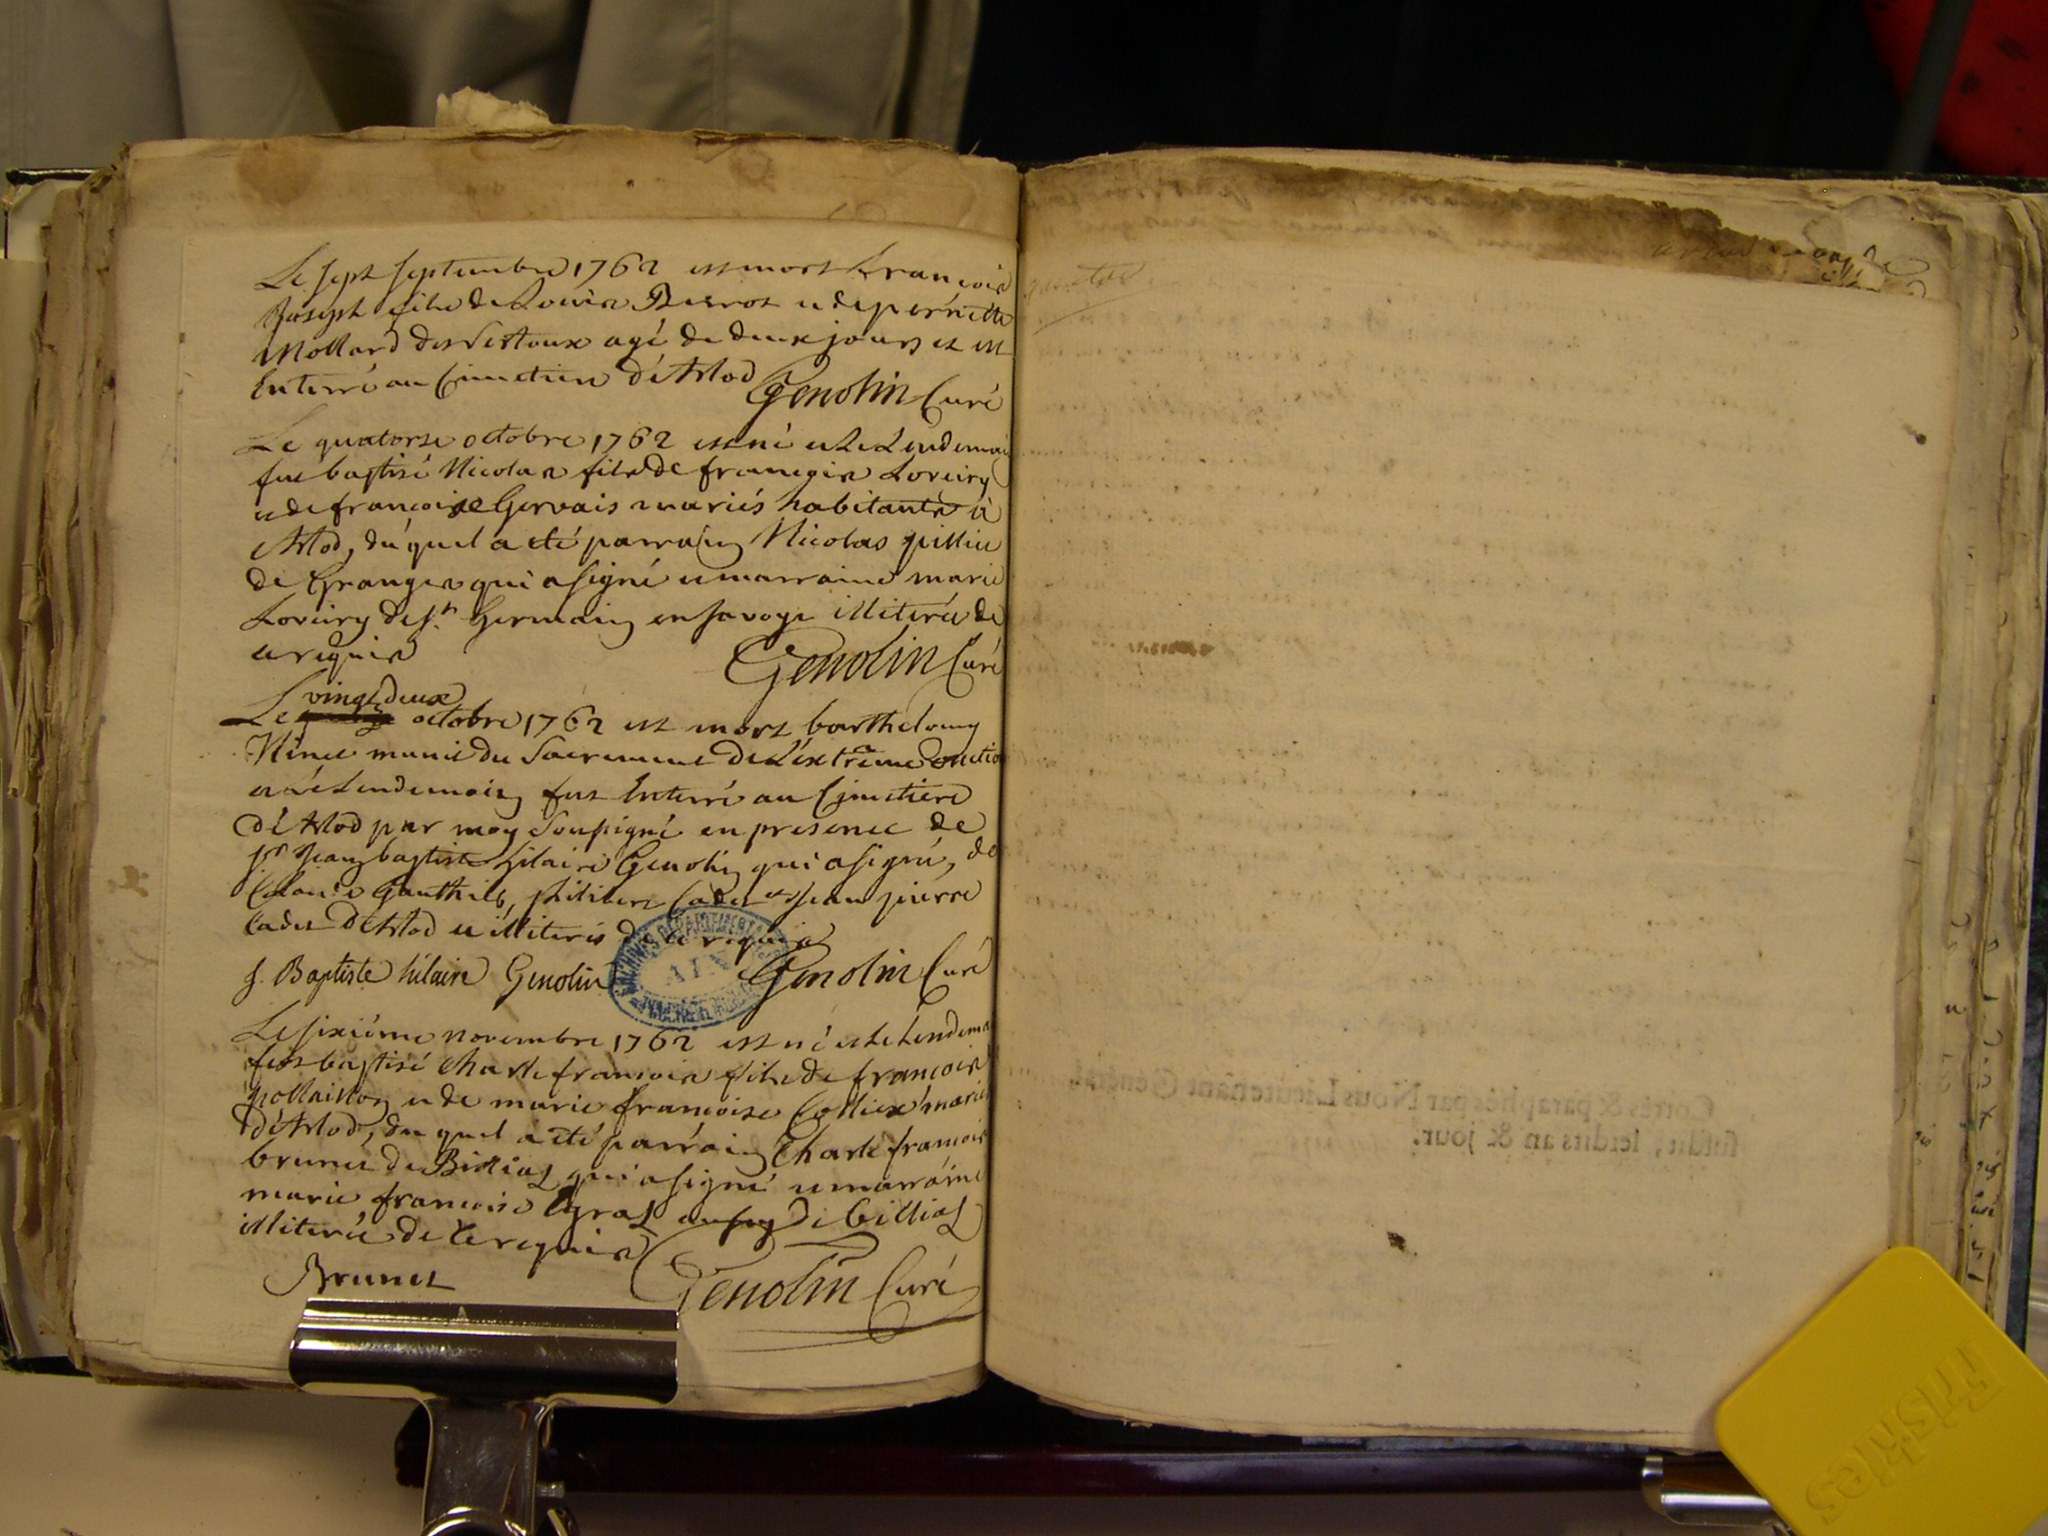 Le sept septembre 1762 est mort francois
Joseph fils de Louis Berrot et de pernette
Mollard des Sertoux agé de deux jours et est
Enterré au Cimetiere d'Arlod Genolin Curé
Le quatorse octobre 1762 est né et Le Lendemain
fut baptisé Nicolas fils de francois Loveiry
et de francoise Gervais mariés habitants à
Arlod, du quel a eté parrain Nicolas
de Granges qui a signé et marraine marie
Loveiry de St Germain en savoye illiterée de
ce requis Genolin Curé
vingt deux
Le octobre 1762 est mort barthelemy
Ninet munis du Sacrement de L'extrême onction
et Le Lendemain fut Enterré au Cimetiere
d'Arlod par moy Soussigné en presence de
sr Jean baptiste hilaire Genolin qui a signé, de
Claude Gauthier, philibert Cadet et Jean pierre
Cadet d'Arlod et illiterés de ce requis
J. Baptiste hilaire Genolin Genolin Curé
ARCHIVES DEPARTEMENTALES
AIN
Le sixiéme novembre 1762 est né et Le Lendemain
fut baptisé Charle francois fils de francois
pollaillon et de marie francoise Collier mariés
d'Arlod, du quel a eté parrain Charle francois
brunet de Billiat qui a signé et marraine
marie francoise Gras de billiat
illiterée de Ce requis
Brunet Genolin Curé
Cottés & paraphés par Nous Lieutenant General
susdit, lesdits an & jour.
Friskies